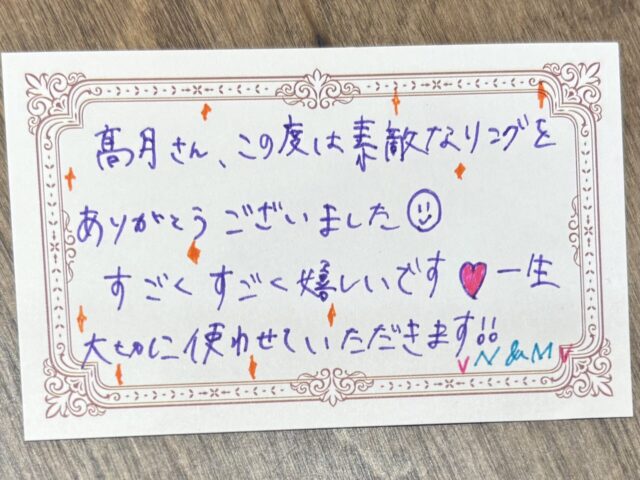 髙月さん、この度は素敵なリングを
ありがとうございました
すごくすごく嬉しいです♥一生
大切に使わせていただきます!!
N & M